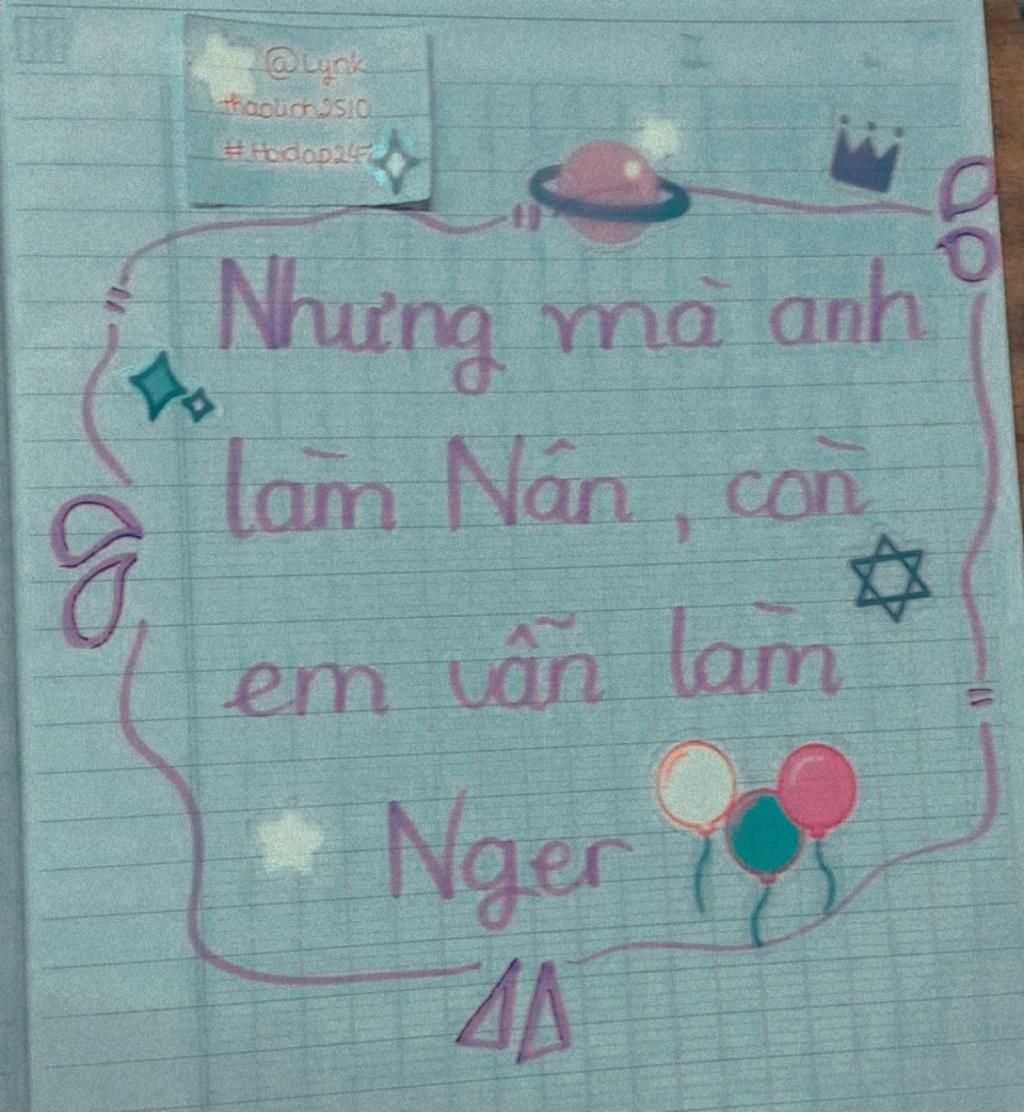 @Lynk
thaolinh2510
#Hoidap247
Nhưng mà anh
làm Nân, còn
em vẫn làm
Nger